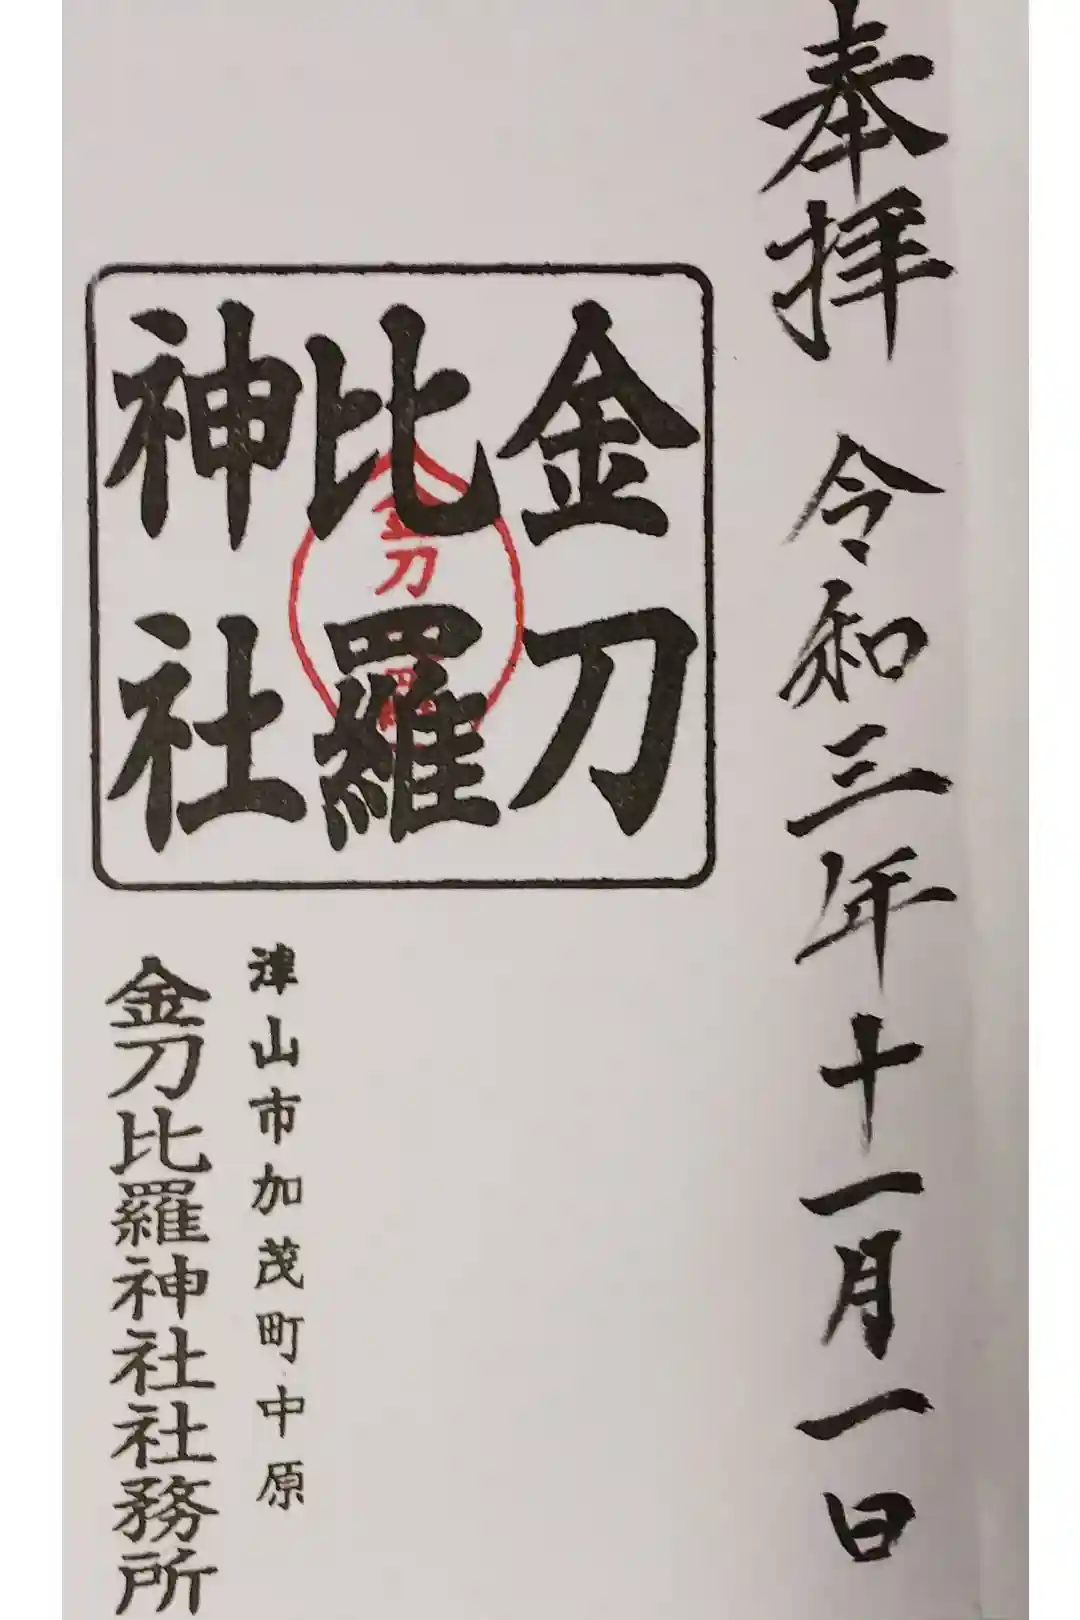 奉拝 令和三年十一月一日
金刀
比羅
神社
金刀
津山市加茂町中原
金刀比羅神社社務所